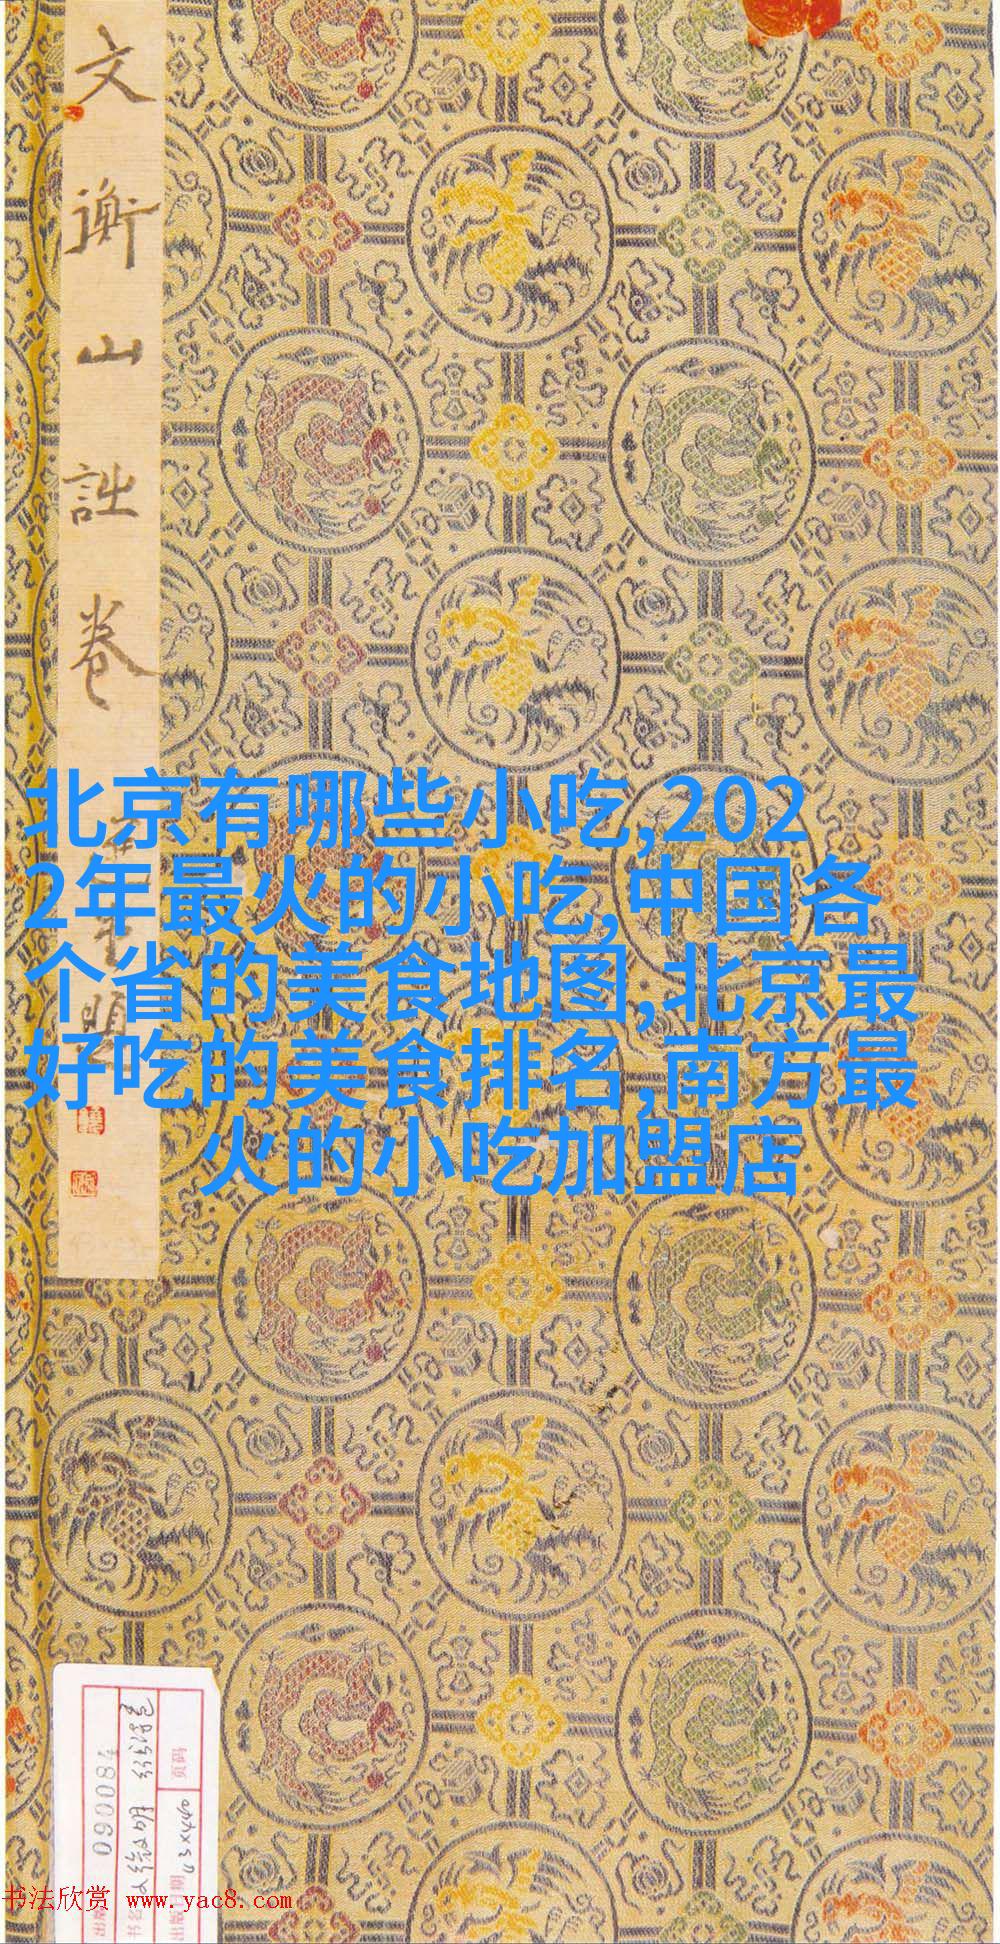 文衡山詩卷
北京有哪些小吃,202
2年最火的小吃,中国各
个省的美食地图,北京最
好吃的美食排名,南方最
火的小吃加盟店
090084
页码
43×440
书法欣赏 www.yac8.com